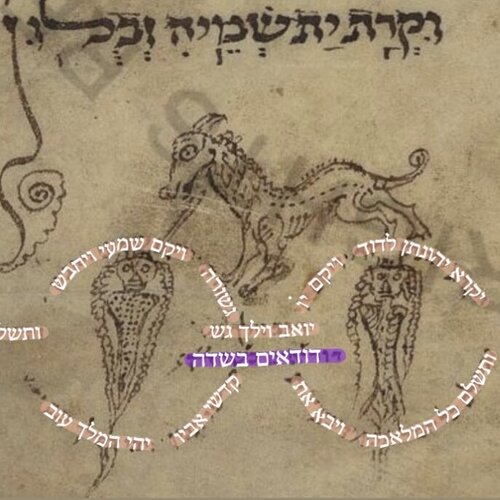 וּקְרָת יַת שְׁמֵיהּ
יקרא יהונתן לדוד
ויקם יו
ויקם שמעי ויחבש
גשורה
יואב וילך גש
ותשל
דודאים בשדה
ותשלם כל המלאכה
ויבא את
קדשי אביו
יהי המלך עוב